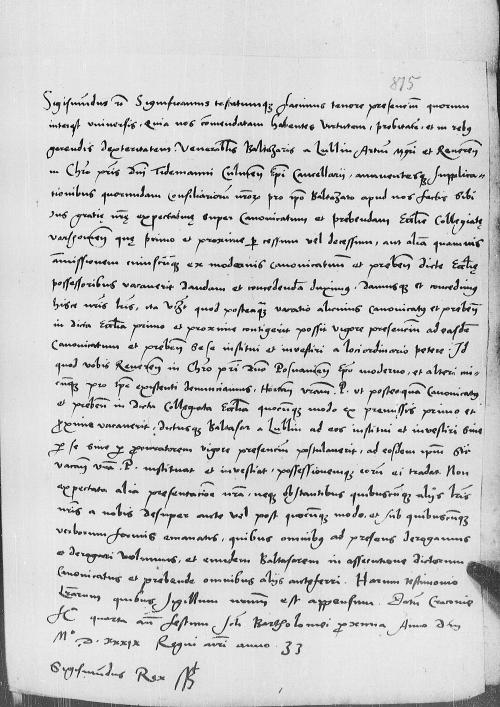 815
Sigismundus rc Significamus testatumqz facimus tenore presencium quorum
interest universis, Quia nos comendatam habentes virtutem, probitatem, et in rebus
gerendis dexteritatem Venerabilis Baltazaris a Lublin Artium et Reveren
in Chro pris Dni Tidemanni Culmen Epi Cancellarij, annuentesqz supplica-
tionibus quorundam consiliariorum nrorum pro ipo Baltazaro apud nos factis sibi
ius gratie nre expectative super Canonicatum et prebendam Ecclie Collegiate
varschovien que primo et proxime p cessum vel decessum, aut aliam quamvis
amissionem cuiuscunqz ex modernis canonicatuum et preben dicte Ecclie
possessoribus vacaverit Dandum et concedendum duximus, Damusqz et concedimus
hisce nris lris, ita vizt quod posteaqz vacatio alicuius Canonicatus et preben
in dicta Ecclia primo et proxime contigerit possit vigore presencium ad eosdem
Canonicatum et preben se se institui et investiri a loci ordinario petere. Id
quod vobis Reveren in Chro pri Dno Posnanien Epo moderno, et alteri cui-
cunqz pro tpe existenti denunciamus, Hortam vram P. ut posteaquam Canonicatus
et preben in Dicta Collegiata Ecclia quocunqz modo ex premissis primo et
proxime vacaverit, Dictusqz Baltasar a Lublin ad eos institui et investiri sive
p se sive p procuratorem vigore presencium postulaverit, ad eosdem ipsum Sic
vacan vra P. instituat et investiat, possessionemqz eorum ei tradat Non
expectata alia presentatione nra, neqz obstantibus quibuscunqz alijs lris
nris a nobis desuper ante vel post quocunqz modo, et sub quibuscunqz
verborum formis emanatis, quibus omnibus ad presens derogamus
et derogari volumus, et eundem Baltasarem in assecutione dictorum
Canonicatus et prebende omnibus alijs anteferri. Harum testimonio
lrarum quibus Sigillum nrum est appensum. Datum Cracovie
f quarta an festum Scti Bartholomei proxima Anno Dni
Mo D XXXIX Regni nri anno 33
Sigismundus Rex sst